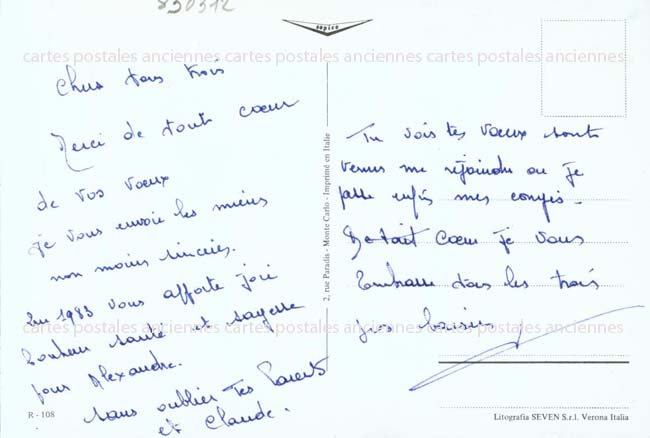 830312
sapira
cartes postales anciennes cartes postales anciennes cartes postales anciennes
Chers tous trois
Merci de tout cœur
de vos vœux
je vous envoie les miens
non moins sincères.
Que 1983 vous apporte joie
Bonheur santé et sagesse
pour Alexandre.
sans oublier Tes Parents
et Claude.
R - 108
2, rue Paradis - Monte Carlo - Imprimé en Italie
Tu vois tes vœux sont
venus me rejoindre où je
passe enfin mes congés -
De tout Cœur je vous
Embrasse tous les trois
cartes postales anciennes cartes postales anciennes cartes postales anciennes
Litografia SEVEN S.r.l. Verona Italia